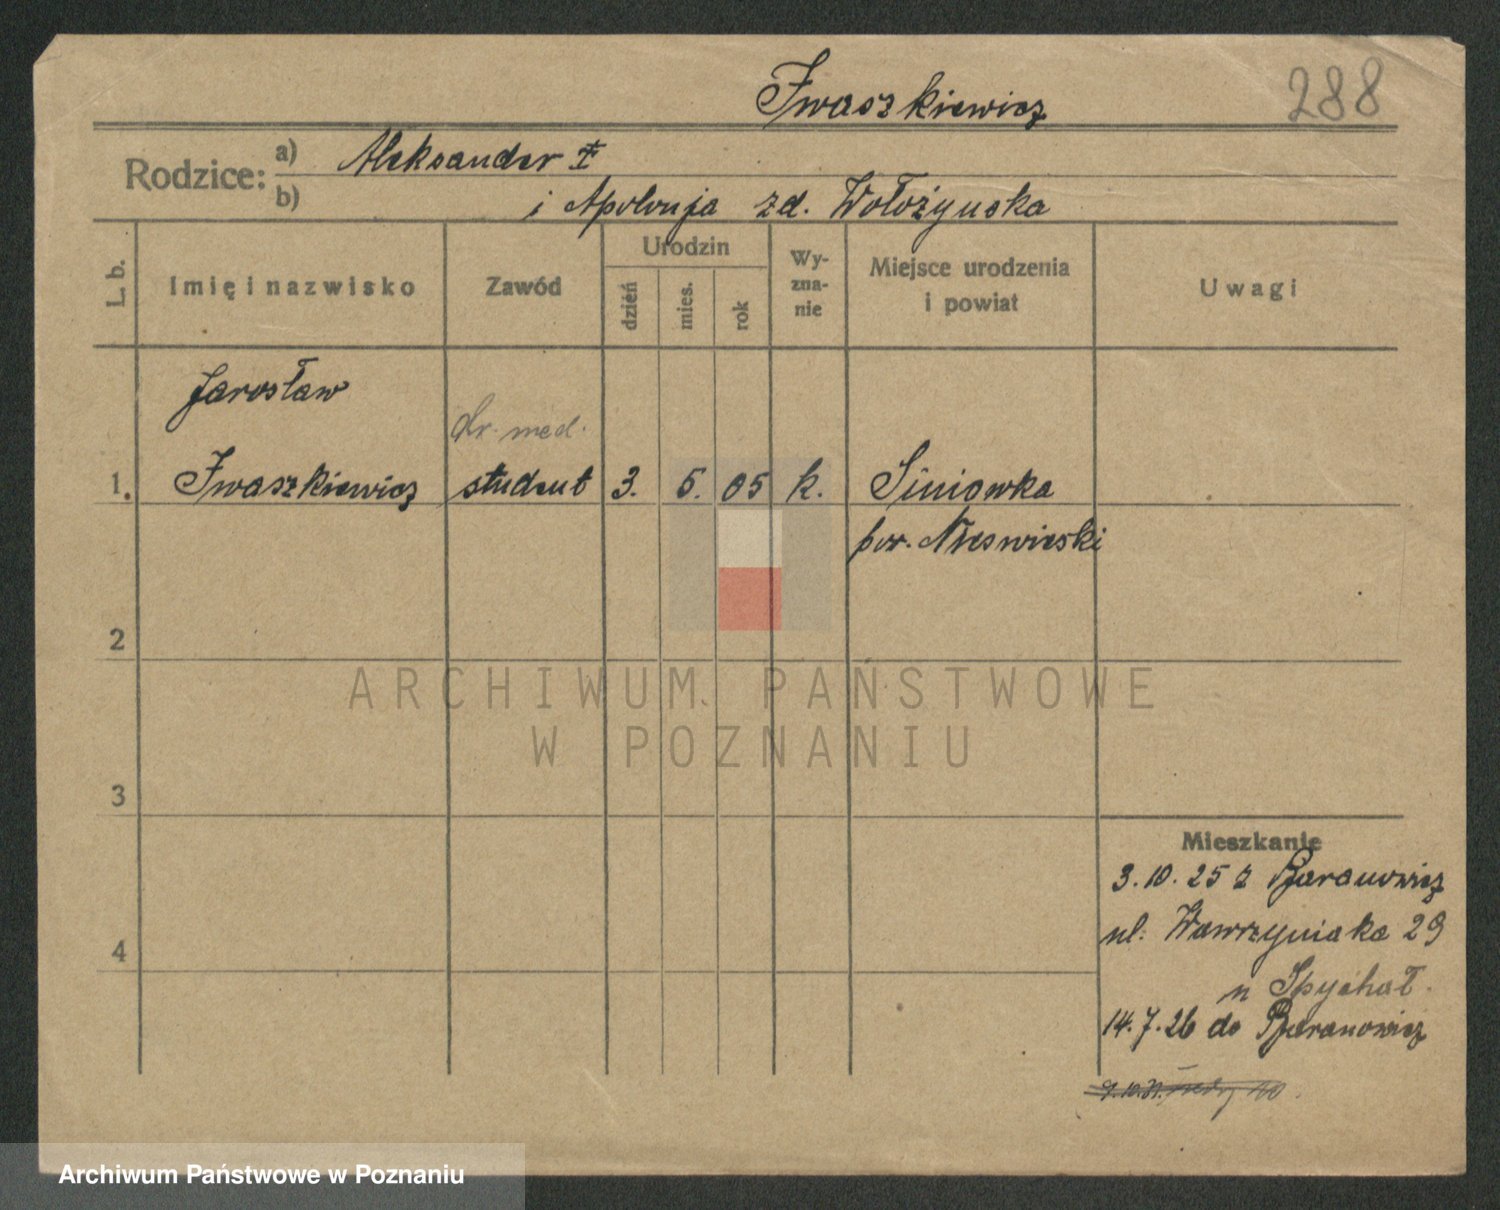 Iwaszkiewicz
288
Rodzice:
a) Aleksander ‡
b) i Apolonja zd. Wołożyńska
L. b.
Imię i nazwisko
Zawód
Urodzin
dzień
mies.
rok
Wy-
zna-
nie
Miejsce urodzenia
i powiat
Uwagi
Jarosław
dr. med.
1. Iwaszkiewicz student 3. 5. 05 k. Siniowka
pow. Nieswieski
2
3
4
ARCHIWUM PAŃSTWOWE
W POZNANIU
Mieszkanie
3.10.25 z Baranowicz
ul. Wawrzyniaka 29
u Spychał.
14.7.26 do Baranowicz
Archiwum Państwowe w Poznaniu